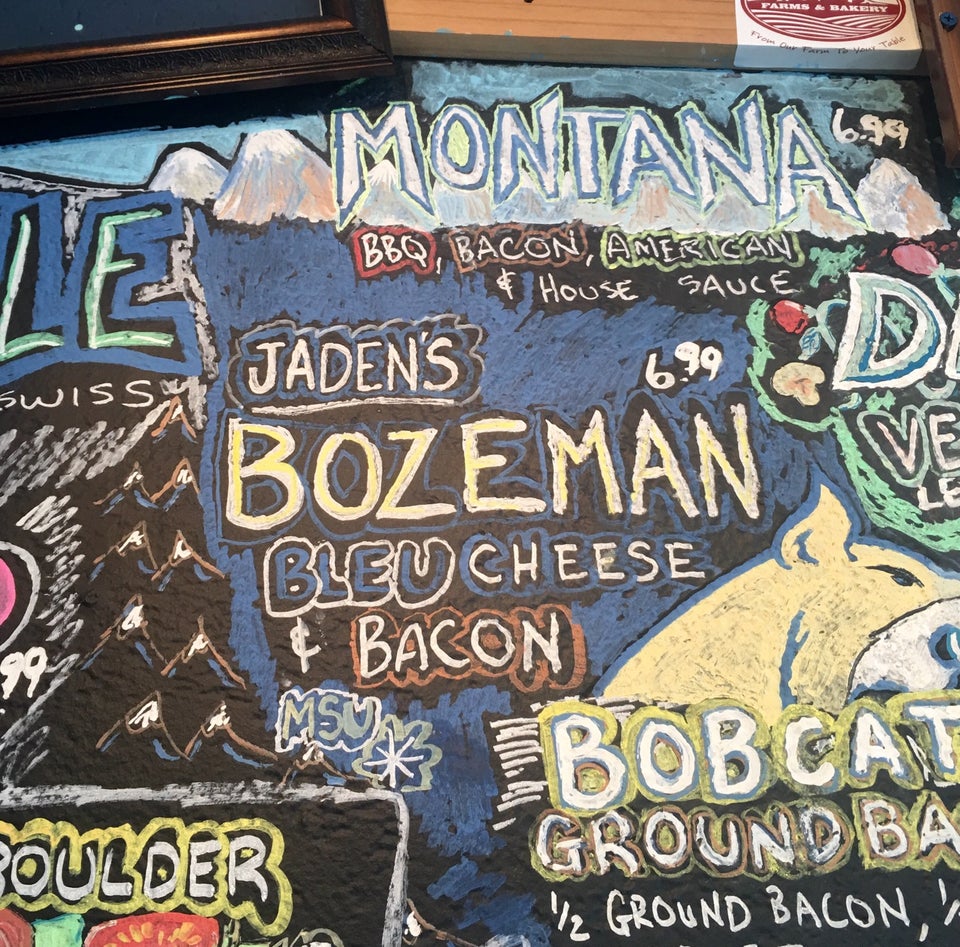 FARMS & BAKERY
From Our Farm To Your Table
MONTANA 6.99
BBQ, BACON, AMERICAN
& HOUSE SAUCE
LE
SWISS
JADEN'S
6.99
BOZEMAN
BLEU CHEESE
& BACON
.99
MSU
BOBCAT
GROUND BA
1/2 GROUND BACON,
BOULDER
D
VE
LE